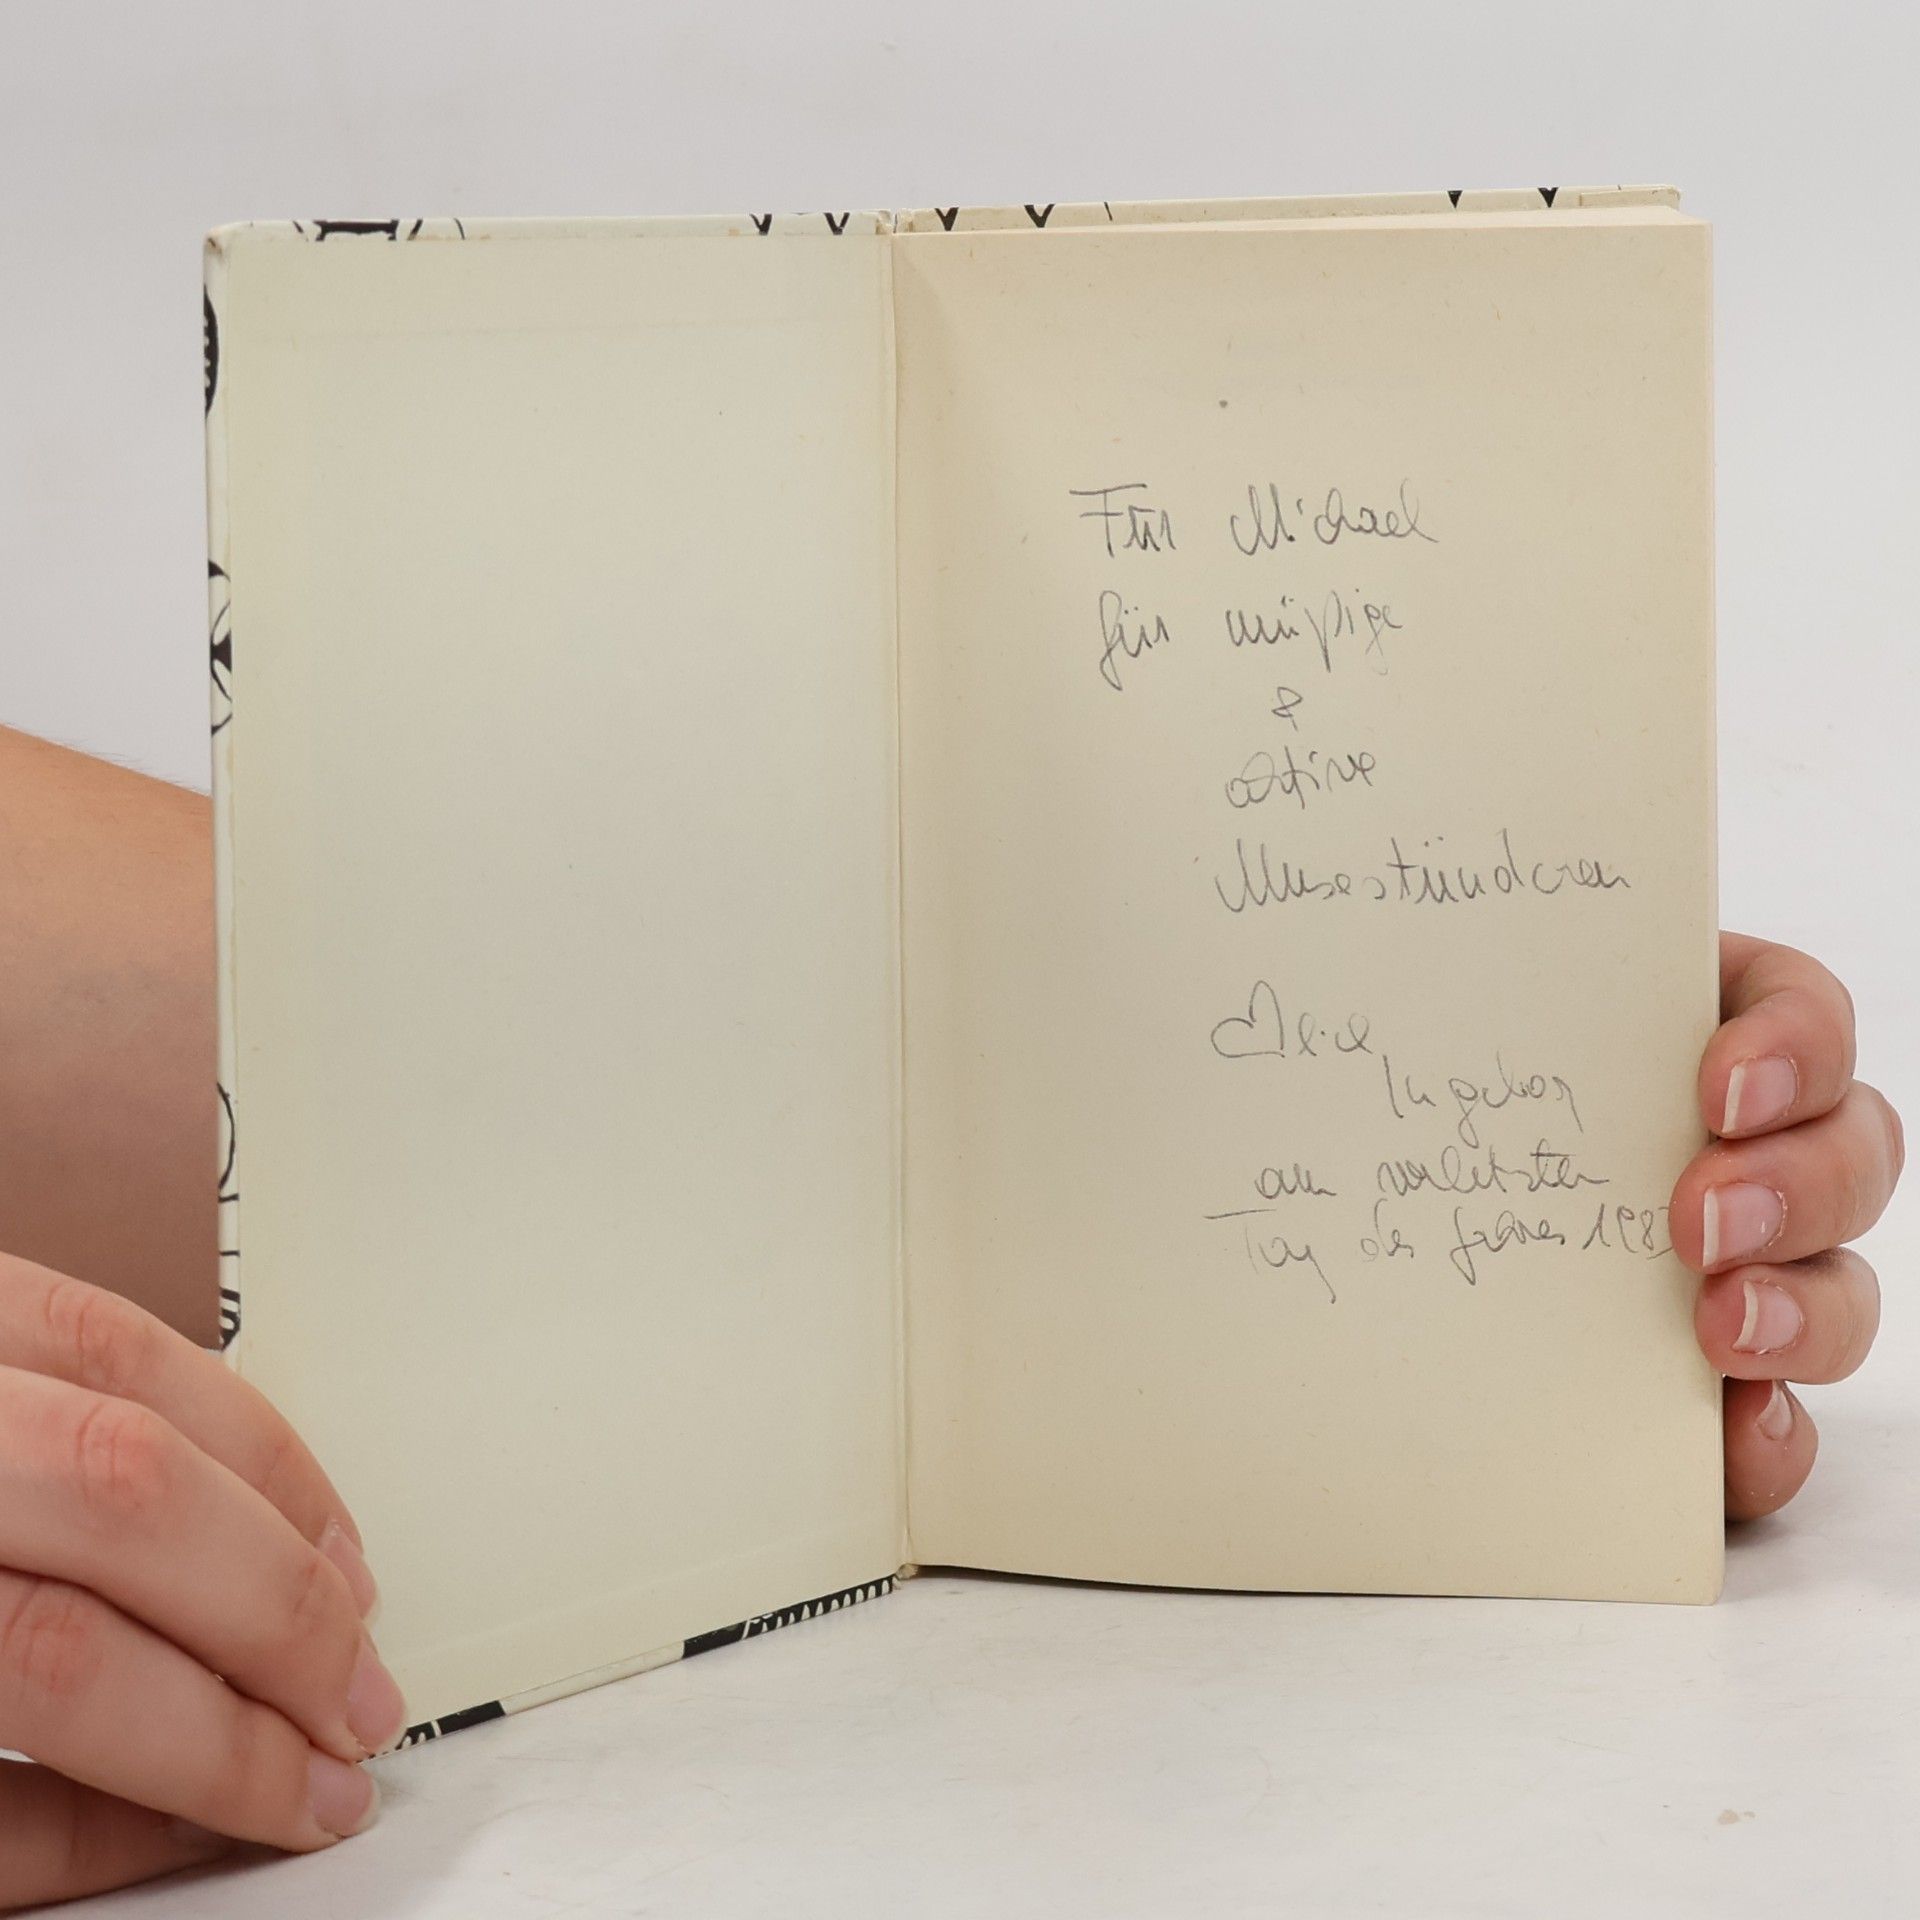 Für Michael
für müßige
&
aktive
Musestündchen
♡lich
Ingeborg
am vorletzten
Tag des Jahres 198